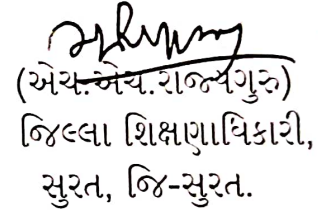 (એચ.એચ.રાજ્યગુરુ)
જિલ્લા શિક્ષણાધિકારી,
સુરત, જિ-સુરત.